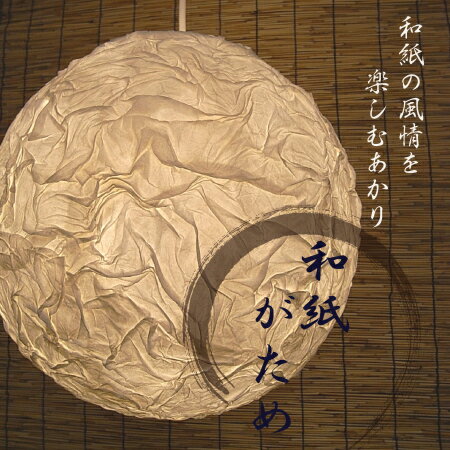 和紙の風情を
楽しむあかり
和紙
がため